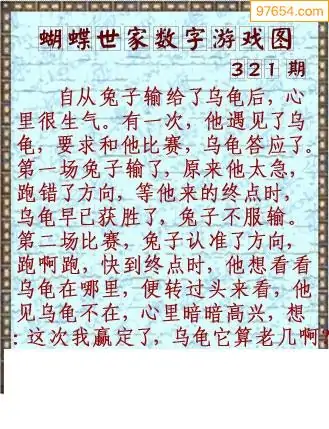 97654.com
蝴蝶世家数字游戏图
321 期
自从兔子输给了乌龟后，心
里很生气。有一次，他遇见了乌
龟，要求和他比赛，乌龟答应了。
第一场兔子输了，原来他太急，
跑错了方向，等他来的终点时，
乌龟早已获胜了，兔子不服输。
第二场比赛，兔子认准了方向，
跑啊跑，快到终点时，他想看看
乌龟在哪里，便转过头来看，他
见乌龟不在，心里暗暗高兴，想
：这次我赢定了，乌龟它算老几啊？